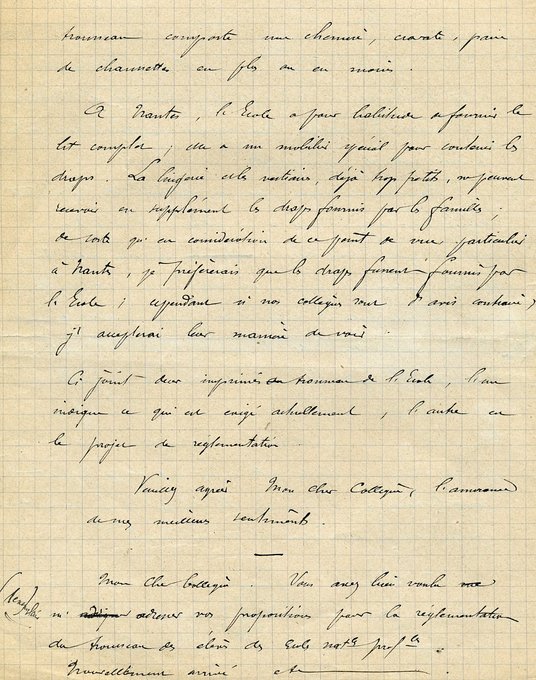 trousseau comporte une chemise, cravate, paire
de chaussettes en plus ou en moins.
A Nantes, l'Ecole a pour habitude de fournir le
lit complet ; elle a un mobilier spécial pour contenir les
draps. La lingerie et les vestiaires, déjà trop petits, ne peuvent
recevoir en supplément les draps fournis par les familles ;
de sorte qu'en considération de ce point de vue particulier
à Nantes, je préférerais que les draps fussent fournis par
l'Ecole ; cependant si nos collègues sont d'avis contraire,
j'accepterai leur manière de voir.
Ci joint deux imprimés du trousseau de l'Ecole, l'un
indique ce qui est exigé actuellement, l'autre est
le projet de réglementation.
Veuillez agréer Mon cher Collègue, l'assurance
de mes meilleurs sentiments.
Mon cher Collègue. Vous avez bien voulu
m' adresser vos propositions pour la réglementation
du trousseau des élèves des Ecoles natles profles.
Nouvellement arrivé etc